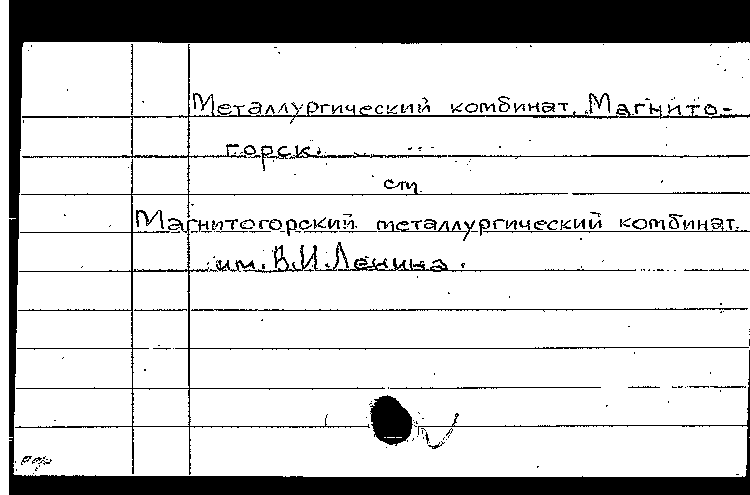 Металлургический комбинат. Магнито-
горск.
см.
Магнитогорский металлургический комбинат
им. В.И. Ленина.